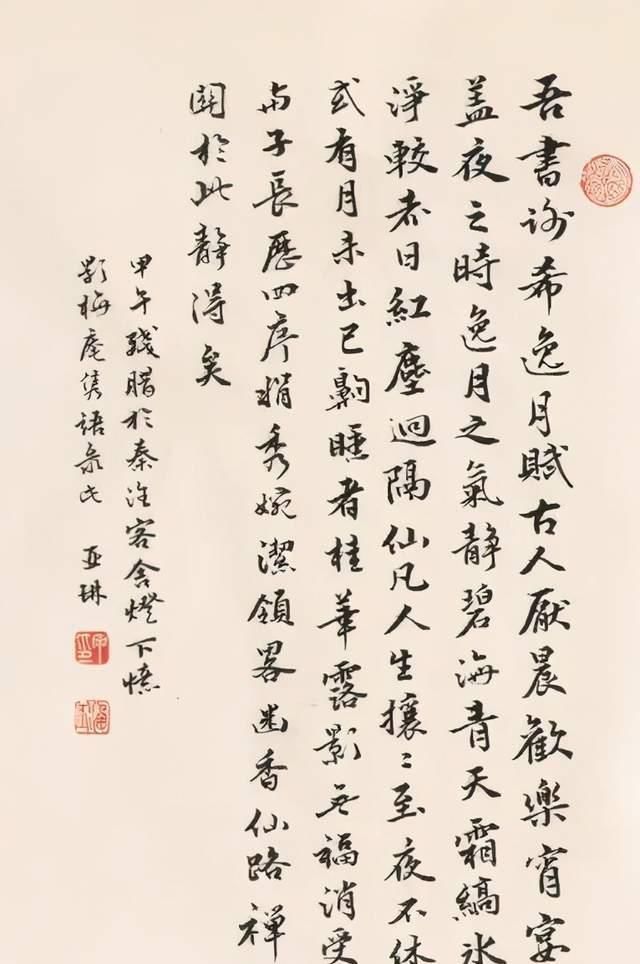 吾書謝希逸月賦古人厭晨歡樂宵宴
蓋夜之時逸月之氣靜碧海青天霜縞冰
淨較赤日紅塵迥隔仙凡人生攘〻至夜不休
或有月未出已齁睡者桂華露影無福消受
與子長歷四序娟秀婉潔領畧幽香仙路禪
關於此靜得矣
甲午殘臘於秦淮客舍燈下憶
影梅庵雋語錄此 亞琳